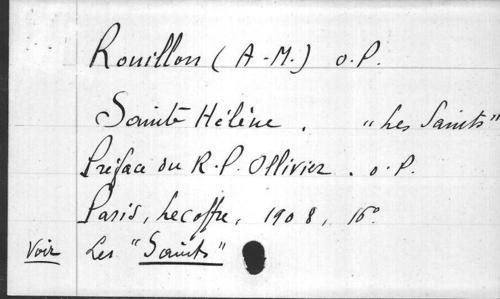 Rouillon (A-M.) o.P.
Sainte Hélène. "Les Saints"
Préface du R.P. Ollivier. o.P.
Paris, Lecoffre, 1908, 16°
Voir Les "Saints"